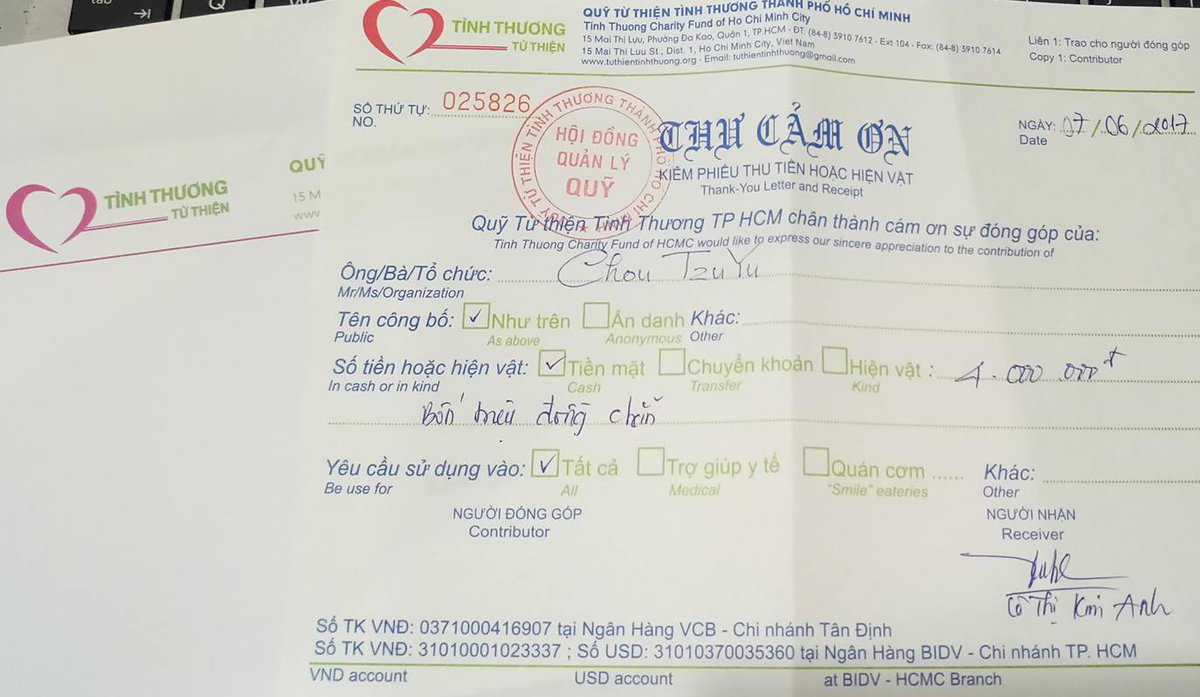 TÌNH THƯƠNG
TỪ THIỆN
QUỸ
15 M
www.
TÌNH THƯƠNG
TỪ THIỆN
QUỸ TỪ THIỆN TÌNH THƯƠNG THÀNH PHỐ HỒ CHÍ MINH
Tinh Thuong Charity Fund of Ho Chi Minh City
15 Mai Thị Lựu, Phường Đa Kao, Quận 1, TP.HCM - ĐT: (84-8) 3910 7612 - Ext 104 - Fax: (84-8) 3910 7614
15 Mai Thi Luu St., Dist. 1, Ho Chi Minh City, Viet Nam
www.tuthientinhthuong.org - Email: tuthientinhthuong@gmail.com
Liên 1: Trao cho người đóng góp
Copy 1: Contributor
SỐ THỨ TỰ: 025826
NO.
QUỸ TỪ THIỆN TÌNH THƯƠNG THÀNH PHỐ HỒ CHÍ MINH
HỘI ĐỒNG
QUẢN LÝ
QUỸ
THƯ CẢM ƠN
KIÊM PHIẾU THU TIỀN HOẶC HIỆN VẬT
Thank-You Letter and Receipt
NGÀY: 07/06/2017
Date
Quỹ Từ thiện Tình Thương TP HCM chân thành cám ơn sự đóng góp của:
Tinh Thuong Charity Fund of HCMC would like to express our sincere appreciation to the contribution of
Ông/Bà/Tổ chức: Chou TzuYu
Mr/Ms/Organization
Tên công bố: ✓ Như trên Ẩn danh Khác:
Public As above Anonymous Other
Số tiền hoặc hiện vật: ✓ Tiền mặt Chuyển khoản Hiện vật : 4.000.000đ
In cash or in kind Cash Transfer Kind
Bốn triệu đồng chẵn
Yêu cầu sử dụng vào: ✓ Tất cả Trợ giúp y tế Quán cơm ...... Khác:
Be use for All Medical "Smile" eateries Other
NGƯỜI ĐÓNG GÓP
Contributor
NGƯỜI NHẬN
Receiver
Thị Kim Anh
Số TK VNĐ: 0371000416907 tại Ngân Hàng VCB - Chi nhánh Tân Định
Số TK VNĐ: 31010001023337 ; Số USD: 31010370035360 tại Ngân Hàng BIDV - Chi nhánh TP. HCM
VND account USD account at BIDV - HCMC Branch